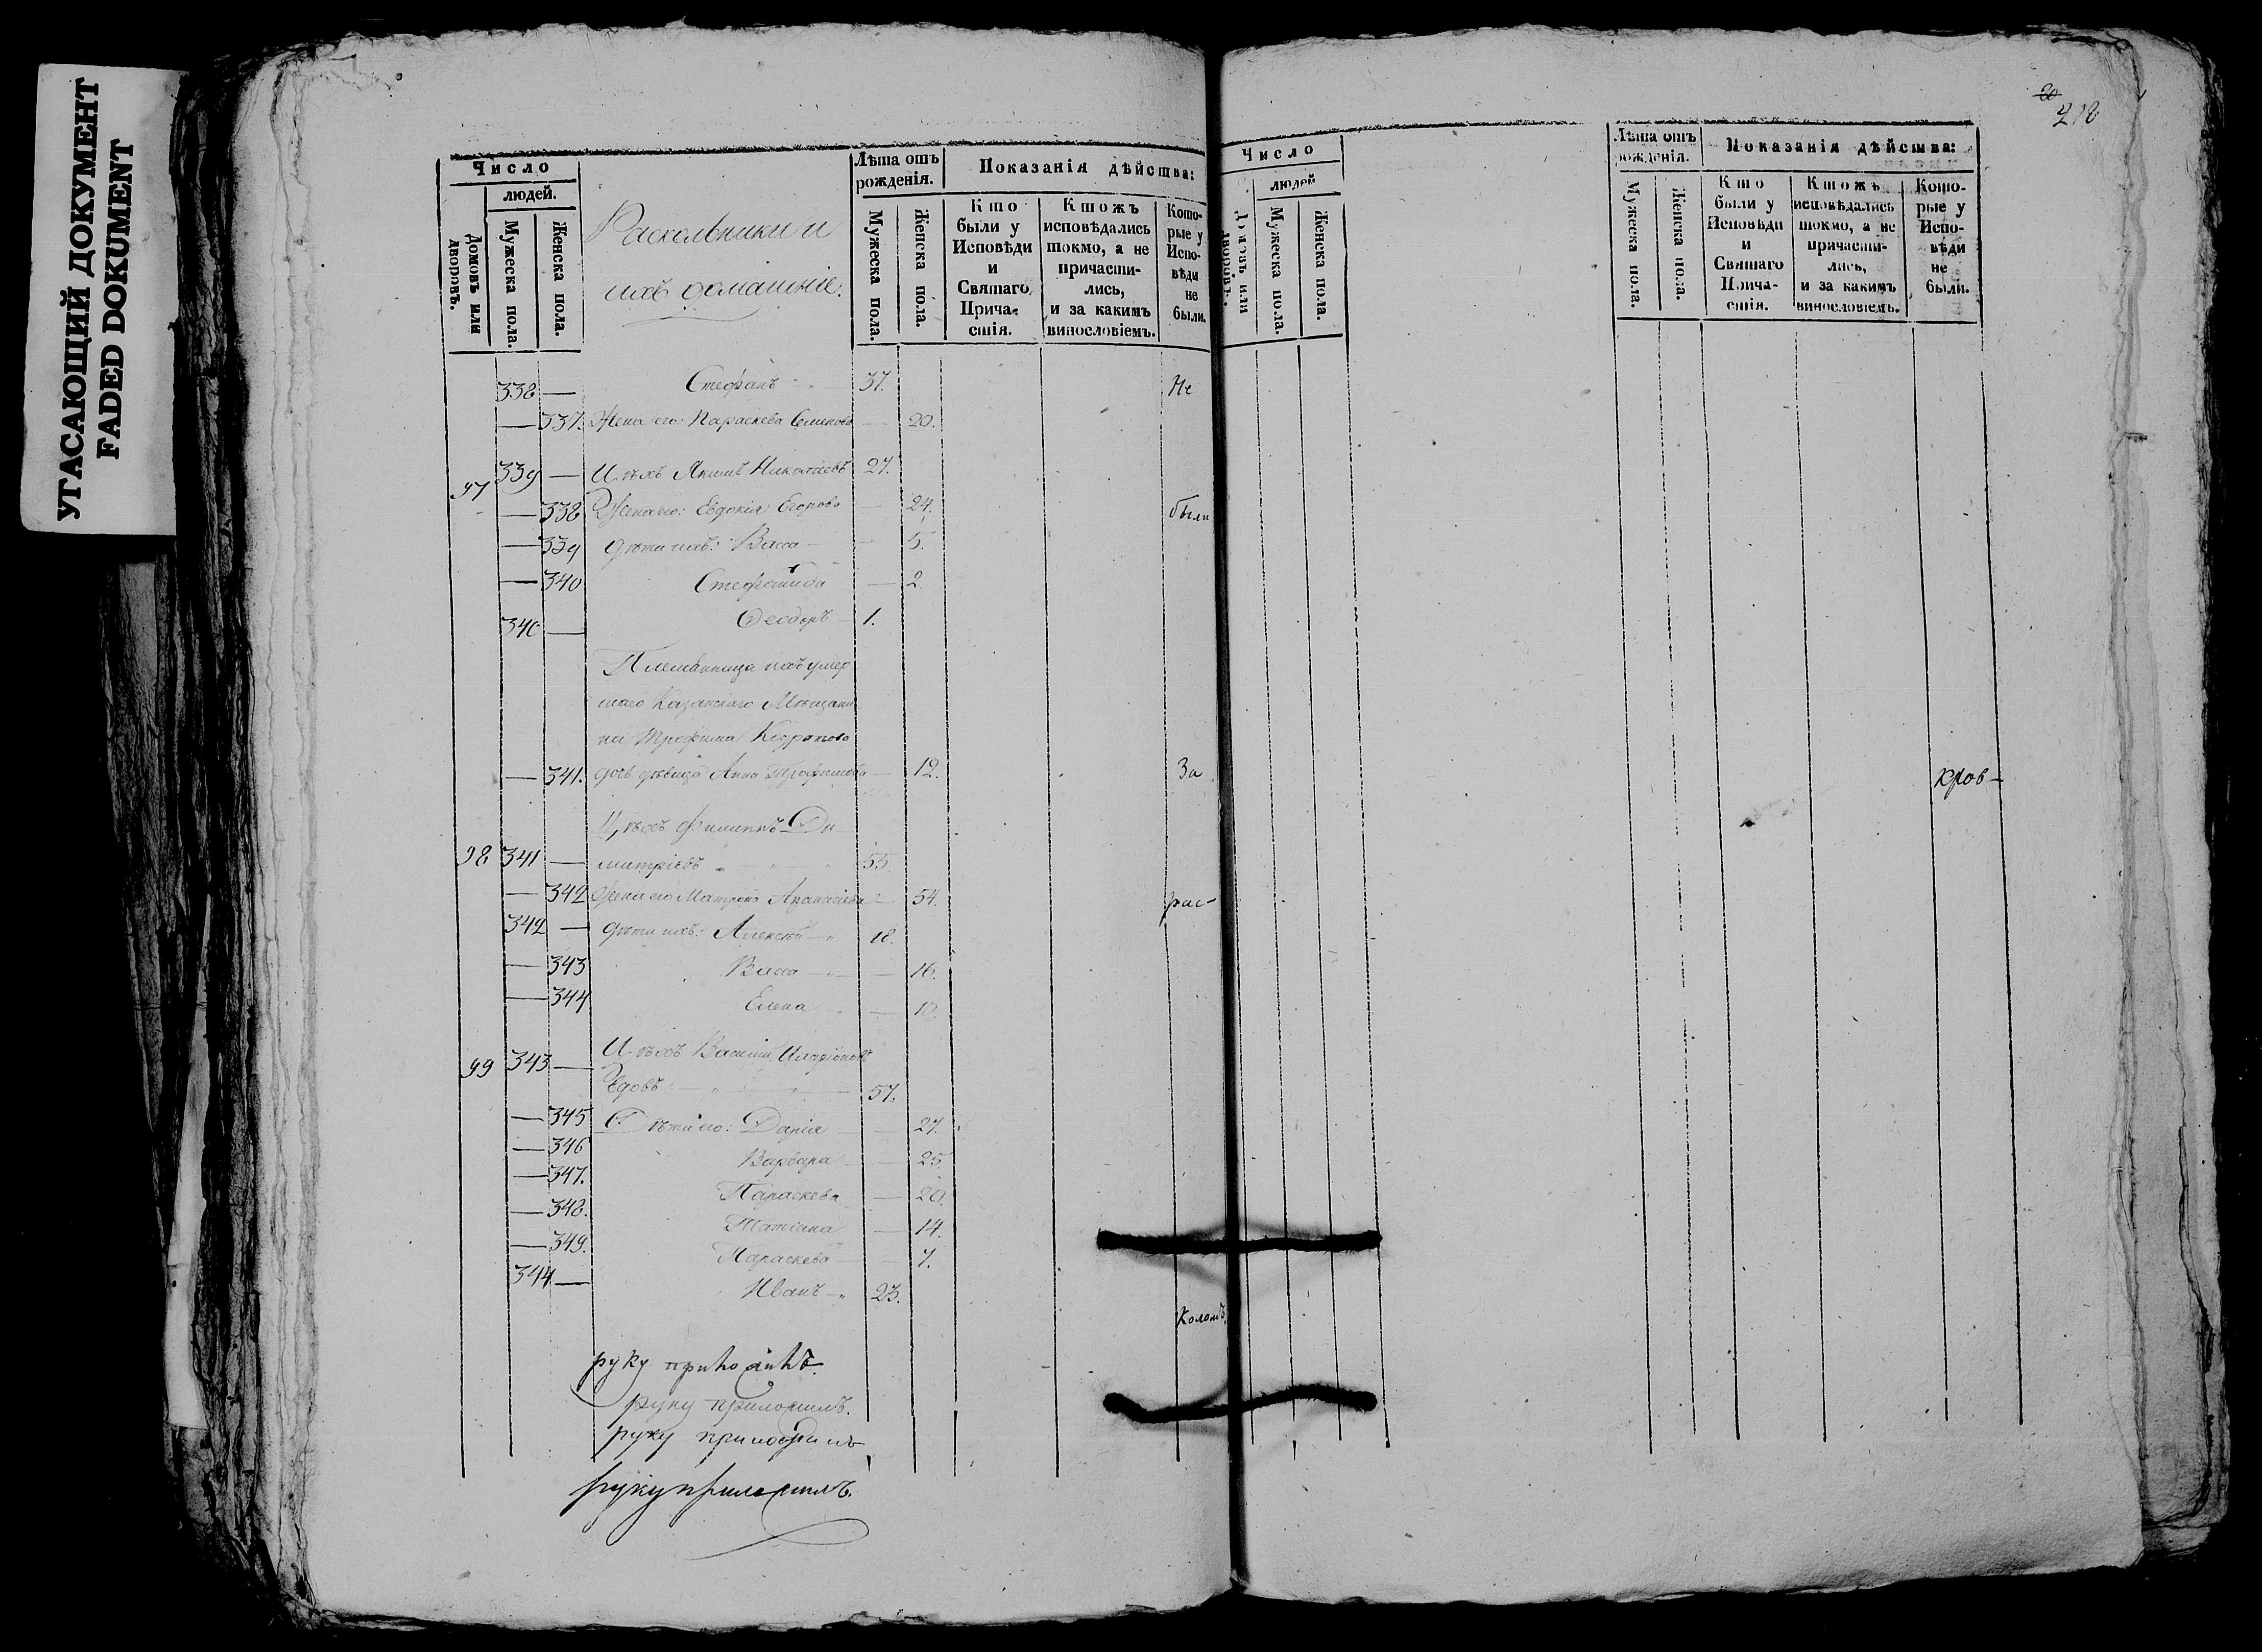 УГАСАЮЩИЙ ДОКУМЕНТ
FADED DOKUMENT
Число
людей.
Домовъ или дворовъ.
Мужеска пола.
Женска пола.
Раскольники и
ихъ домашніе.
Лѣта отъ рожденія.
Мужеска пола.
Женска пола.
Показанія дѣйства:
Кто были у Исповѣди и Святаго Причастія.
Ктожъ исповѣдались токмо, а не причастились, и за какимъ винословіемъ.
Которые у Исповѣди не были.
338 — Стефанъ 37. Не
— 337. Жена его: Параскева Семенова — 20.
97 339 — Ихъ Якимъ Николаевъ 27.
— 338 Жена его: Евдокія Егорова — 24. были
— 339 Дѣти ихъ: Васса — 5.
— 340 Стефанида — 2
340 — Ѳеодоръ 1.
Племянница ихъ умер
шаго Казанскаго Мѣщани
на Трофима
— 341. дочь дѣвица Анна Трофимова — 12. За
филиппъ Ди
98 341 — митріевъ 55.
— 342 Жена его Матрона Афанасіева — 54. рас-
342 — Дѣти ихъ: Алексѣй 18.
— 343 Васса — 16.
— 344 Елена — 10.
99 343 — Василій Иларіоновъ
Вдовъ 57.
— 345 Дѣти его: Дарія — 27.
— 346 Варвара — 25.
— 347. Параскева — 20.
— 348. Татіана — 14.
— 349. Параскева — 7.
344 — Иванъ 23.
Коломъ
руку приложилъ.
руку приложилъ.
руку приложилъ
руку приложилъ.
20
218
Число
людей
Домовъ или дворовъ.
Мужеска пола.
Женска пола.
Лѣта отъ рожденія.
Мужеска пола.
Женска пола.
Показанія дѣйства:
Кто были у Исповѣди и Святаго Причастія.
Ктожъ исповѣдались токмо, а не причастились, и за какимъ винословіемъ.
Которые у Исповѣди не были.
кров-